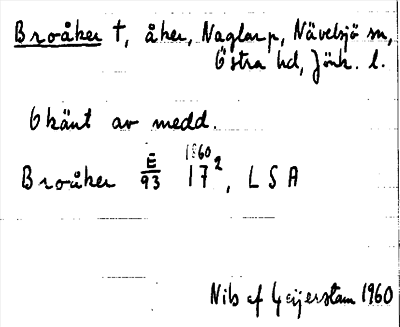 Broåker †, åker, Naglarp, Nävelsjö sn,
Östra hd, Jönk. l.
Okänt av medd.
Broåker E/93 1860 17², LSA
Nils af Geijerstam 1960